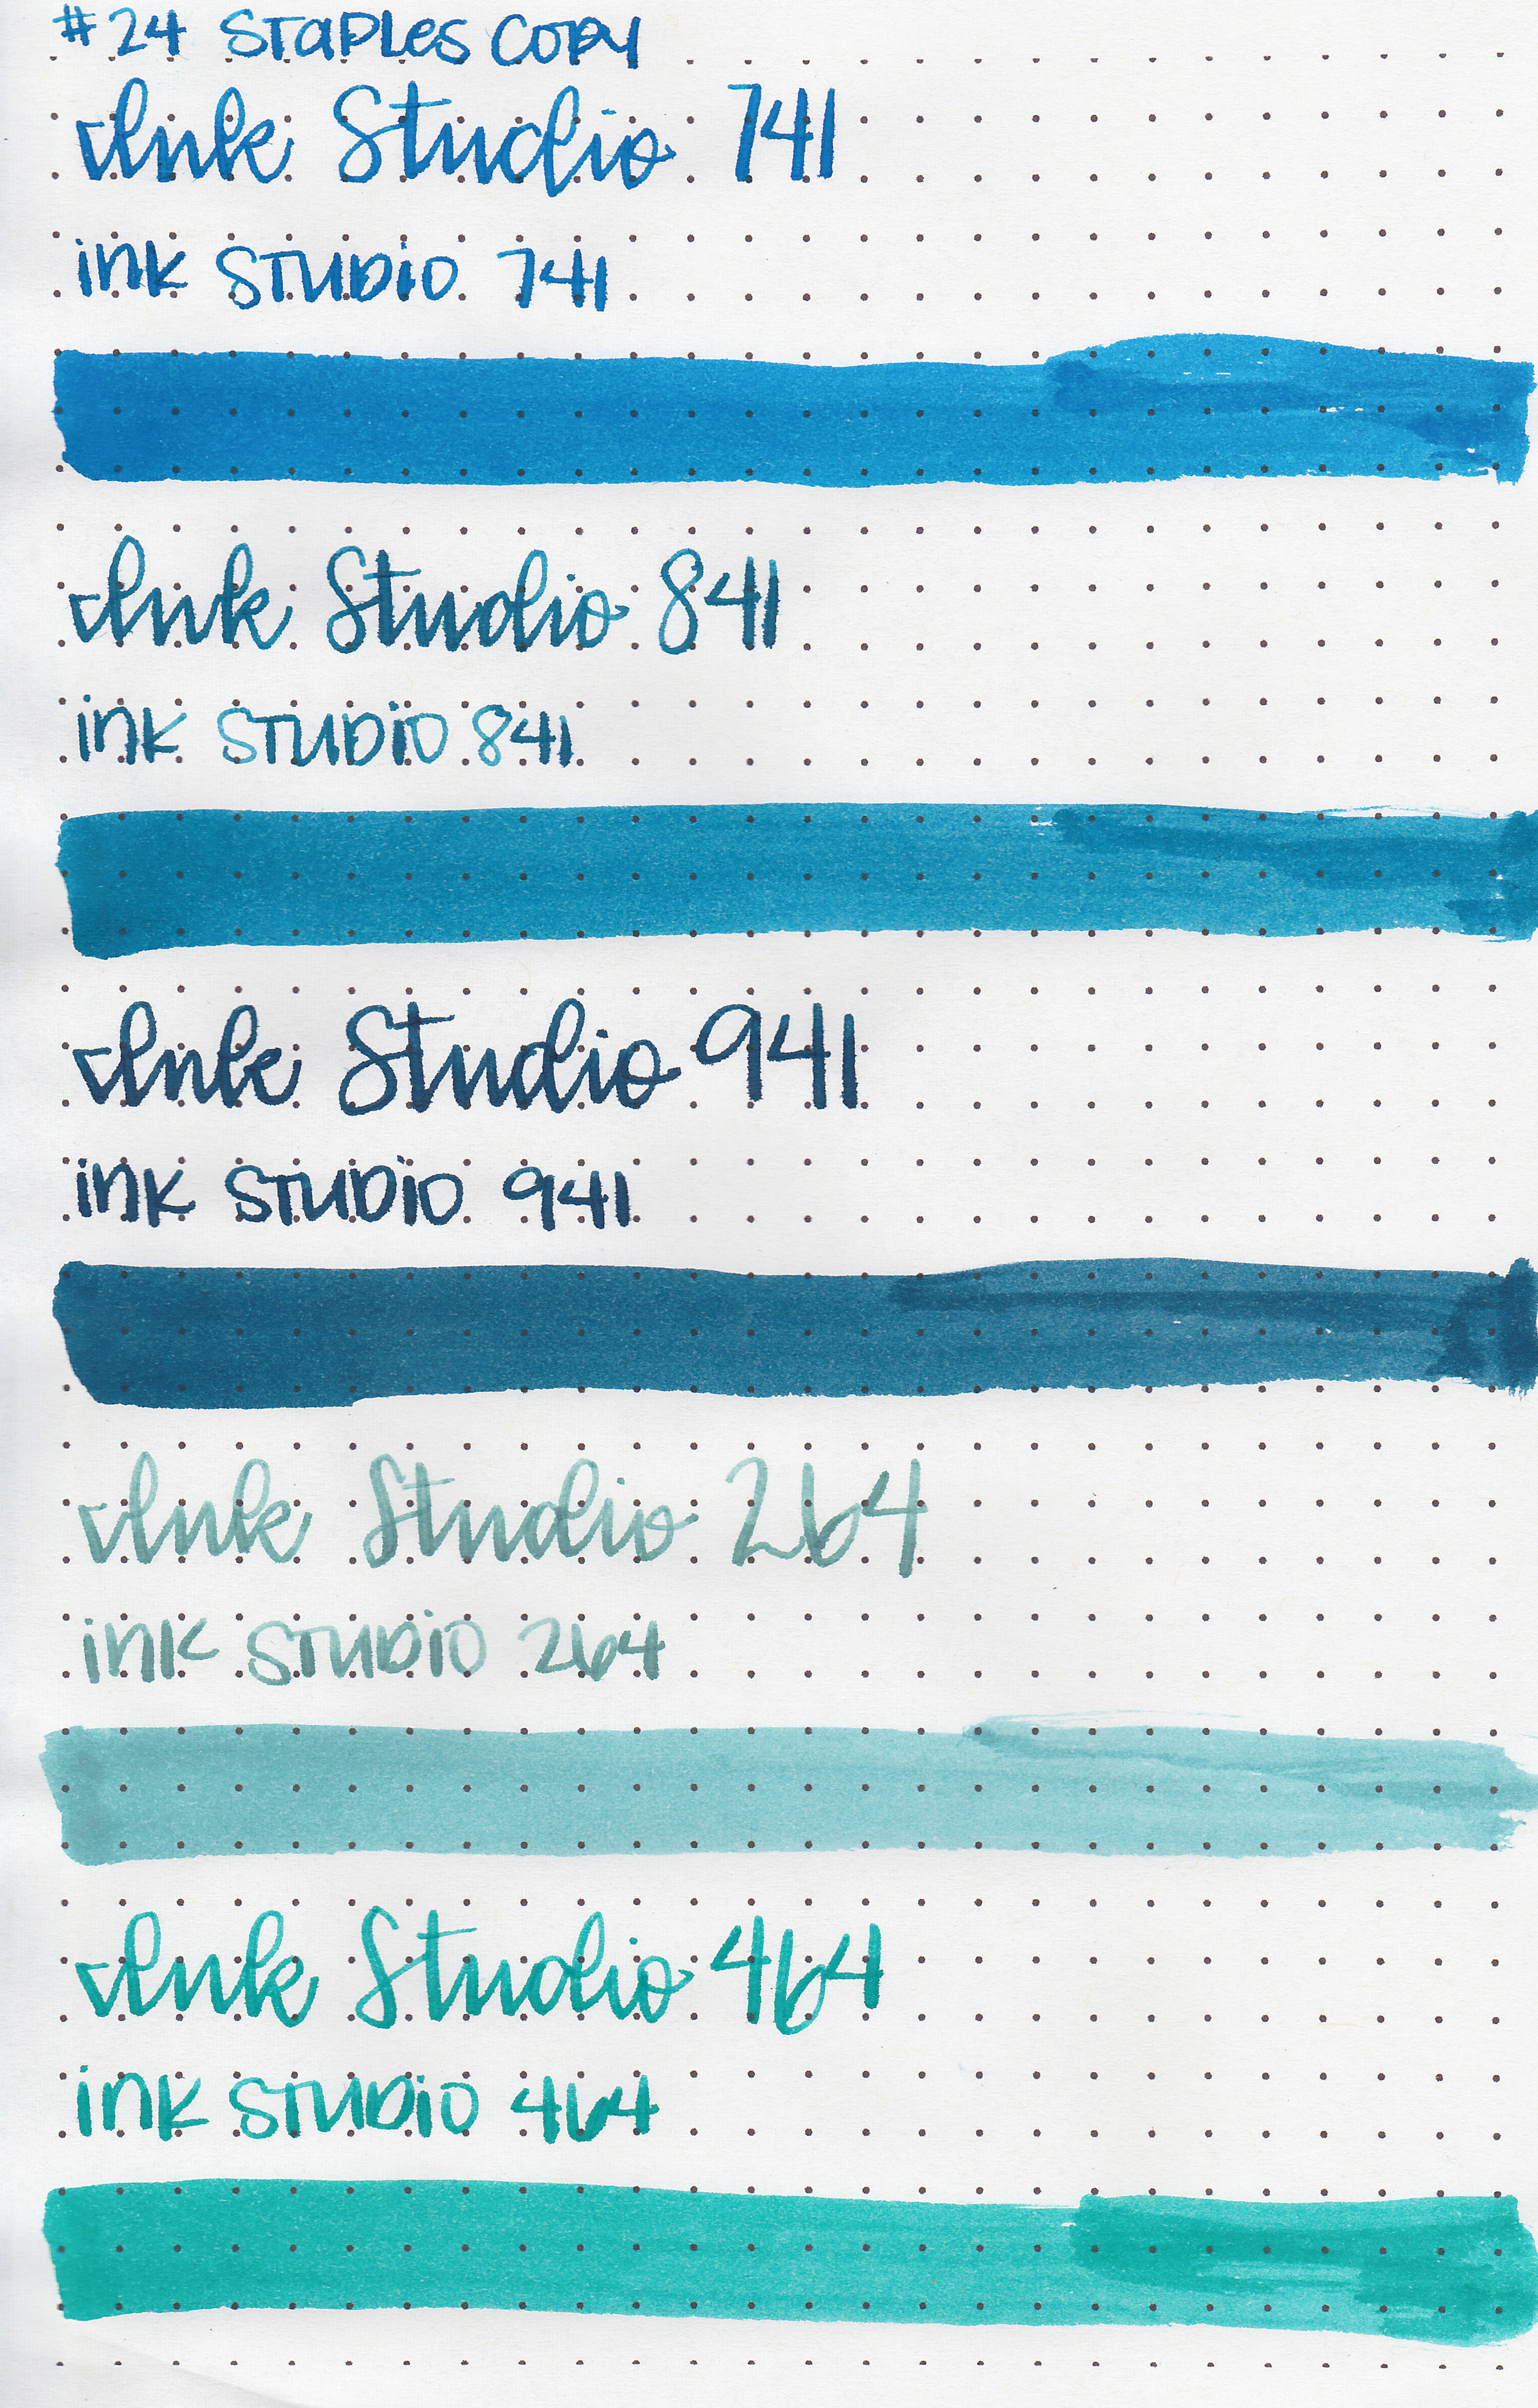 #24 Staples Copy
Ink Studio 741
ink Studio 741
Ink Studio 841
ink Studio 841
Ink Studio 941
ink Studio 941
Ink Studio 264
ink Studio 264
Ink Studio 464
ink Studio 464